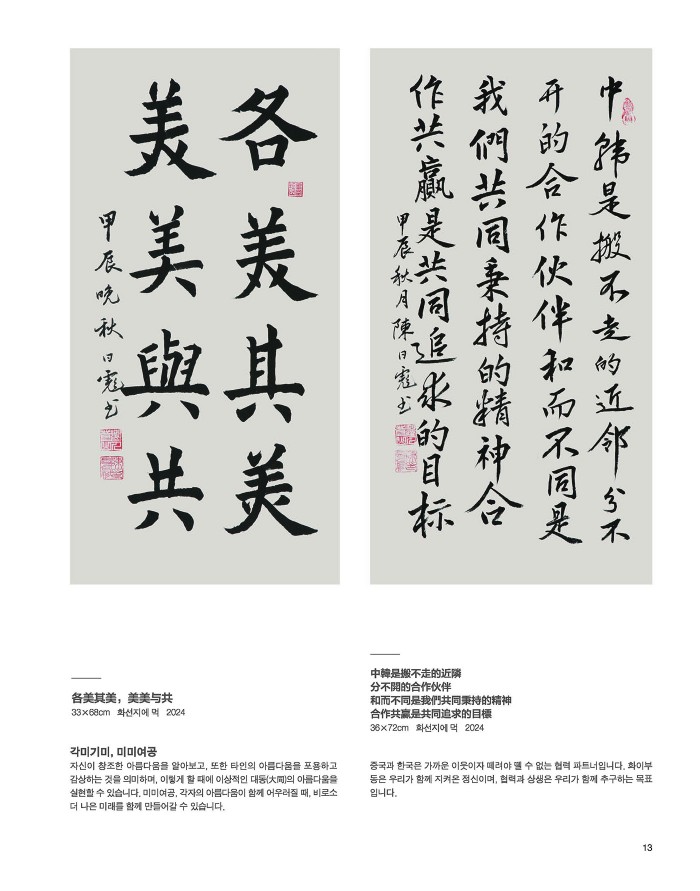 各美其美
美美與共
甲辰晚秋日寵书
中韩是搬不走的近邻分不
开的合作伙伴和而不同是
我們共同秉持的精神合
作共赢是共同追求的目标
甲辰秋月陳日寵书
各美其美，美美与共
33×68cm 화선지에 먹 2024
각미기미, 미미여공
자신이 창조한 아름다움을 알아보고, 또한 타인의 아름다움을 포용하고
감상하는 것을 의미하며, 이렇게 할 때에 이상적인 대동(大同)의 아름다움을
실현할 수 있습니다. 미미여공, 각자의 아름다움이 함께 어우러질 때, 비로소
더 나은 미래를 함께 만들어갈 수 있습니다.
中韓是搬不走的近隣
分不開的合作伙伴
和而不同是我們共同秉持的精神
合作共贏是共同追求的目標
36×72cm 화선지에 먹 2024
중국과 한국은 가까운 이웃이자 떼려야 뗄 수 없는 협력 파트너입니다. 화이부
동은 우리가 함께 지켜온 정신이며, 협력과 상생은 우리가 함께 추구하는 목표
입니다.
13